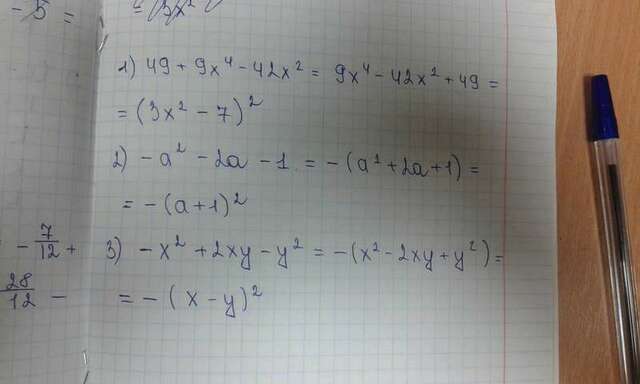 - 5 =
= 3x²
1) 49 + 9x⁴ - 42x² = 9x⁴ - 42x² + 49 =
= (3x² - 7)²
2) - a² - 2a - 1 = - (a² + 2a + 1) =
= - (a + 1)²
- 7/12 +
3) - x² + 2xy - y² = - (x² - 2xy + y²) =
28/12 -
= - (x - y)²